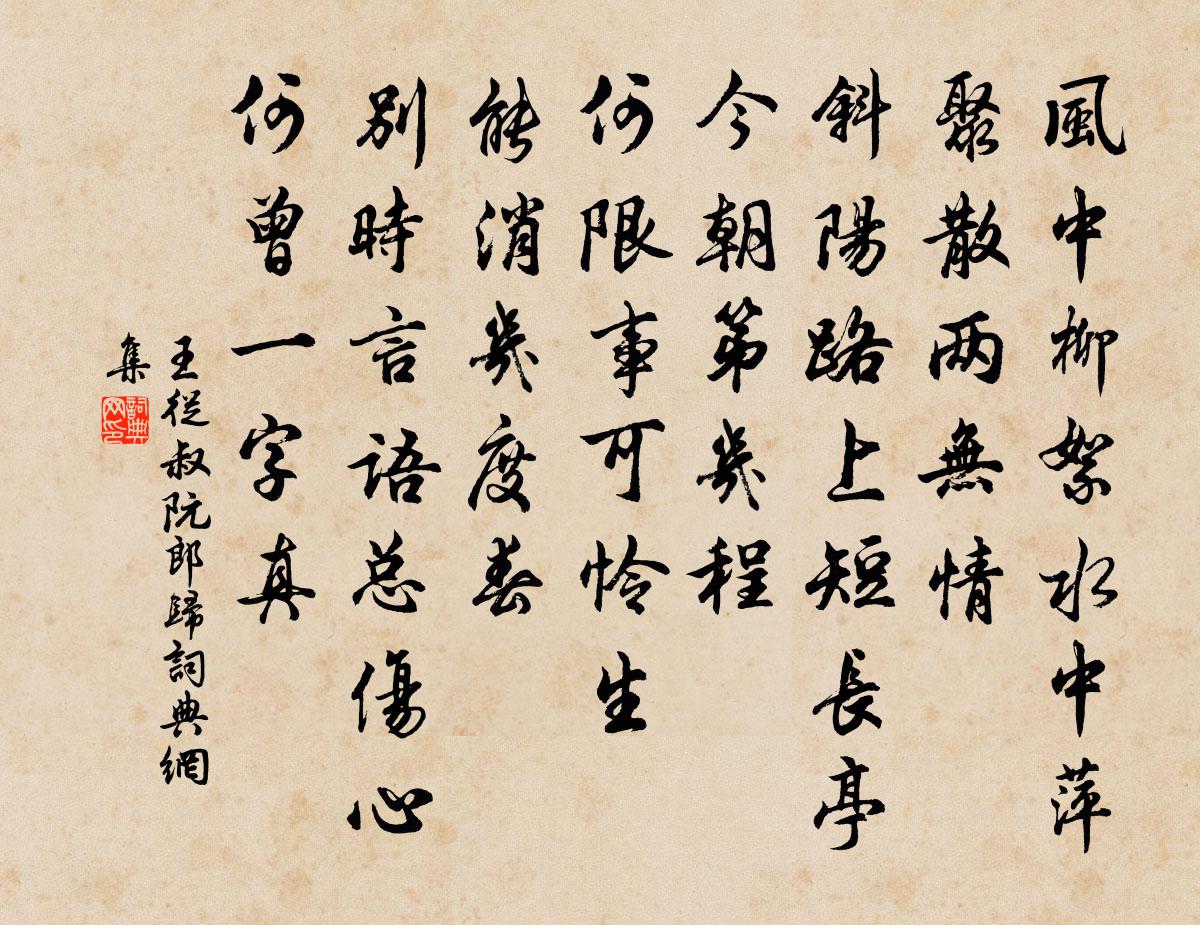 風中柳絮水中萍
聚散两無情
斜陽路上短長亭
今朝第幾程
何限事可怜生
能消幾度春
別時言語总傷心
何曾一字真
王從叔阮郎歸詞典網
集
詞典
网印